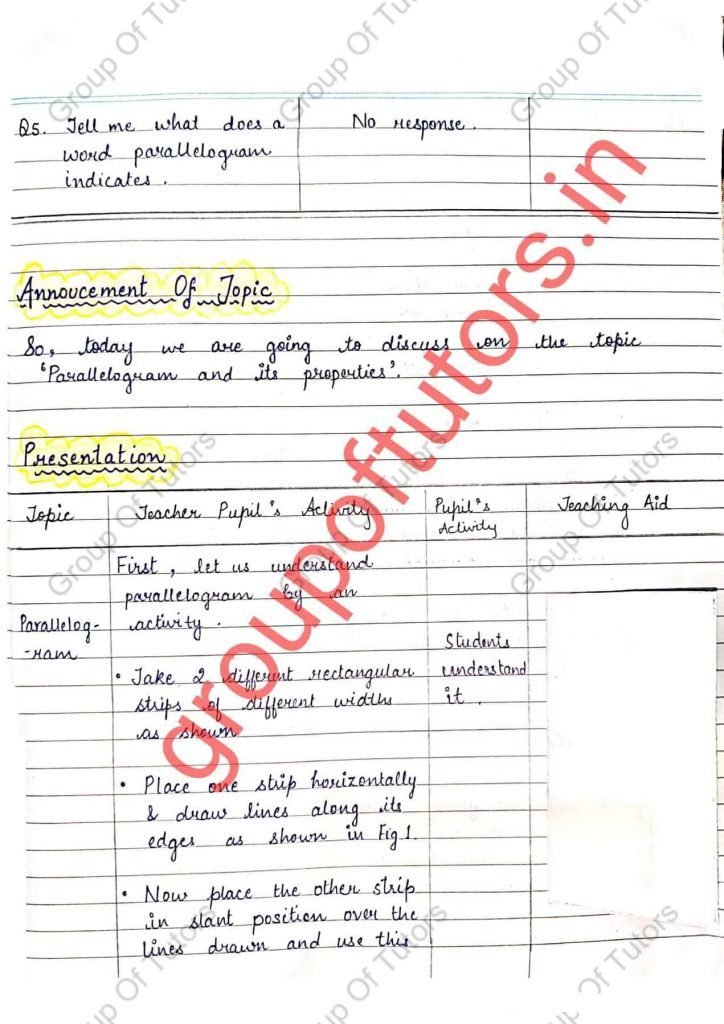 Group Of Tutors
Group Of Tutors
Group Of Tutors
Q5. Tell me what does a
word parallelogram
indicates.
No response.
Annoucement Of Topic
So, today we are going to discuss on the topic
'Parallelogram and its properties'.
Presentation
Topic
Teacher Pupil's Activity
Pupil's
Activity
Teaching Aid
Parallelog-
-ram
First, let us understand
parallelogram by an
activity.
• Take 2 different rectangular
strips of different widths
as shown
• Place one strip horizontally
& draw lines along its
edges as shown in Fig 1.
• Now place the other strip
in slant position over the
lines drawn and use this
Students
understand
it.
groupoftutors.in
Group Of Tutors
Group Of Tutors
Group Of Tutors
Group Of Tutors
Group Of Tutors
Group Of Tutors